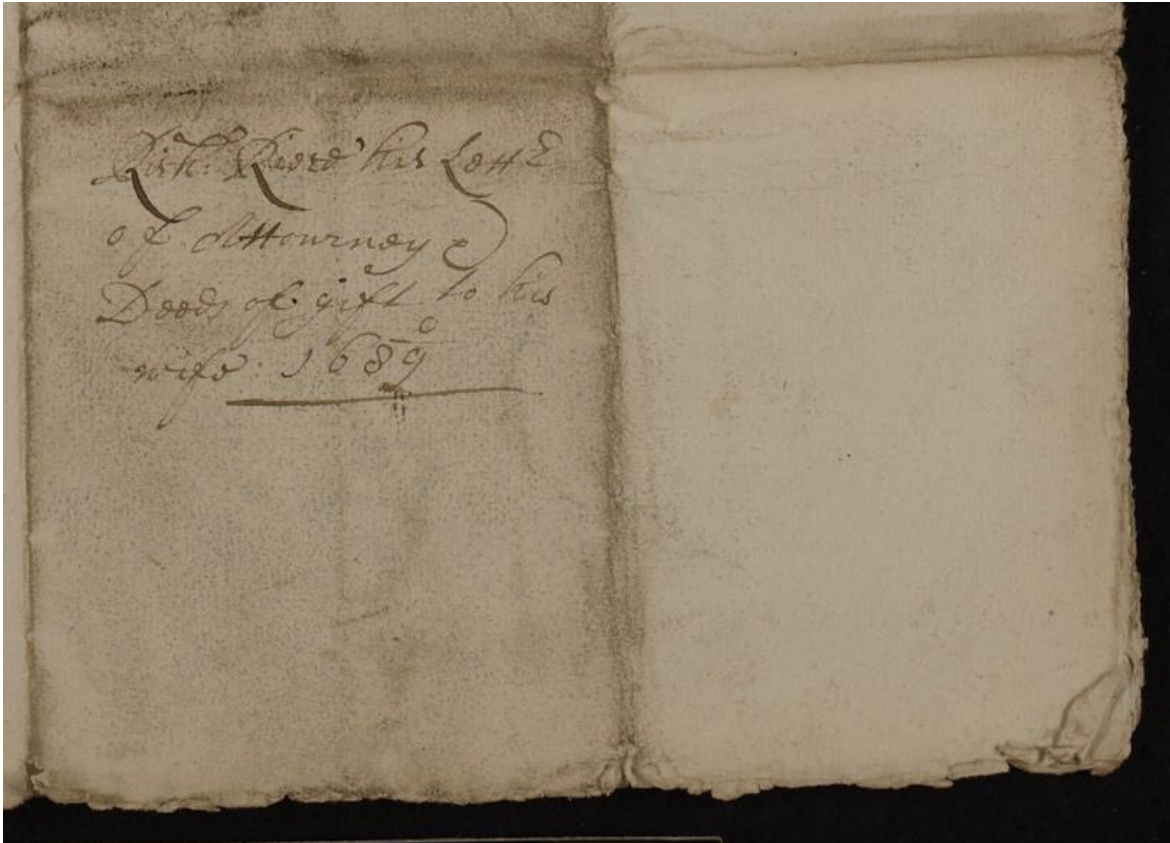 Rich: his Lettr
of Attourney &
Deeds of gift to his
wife: 1689